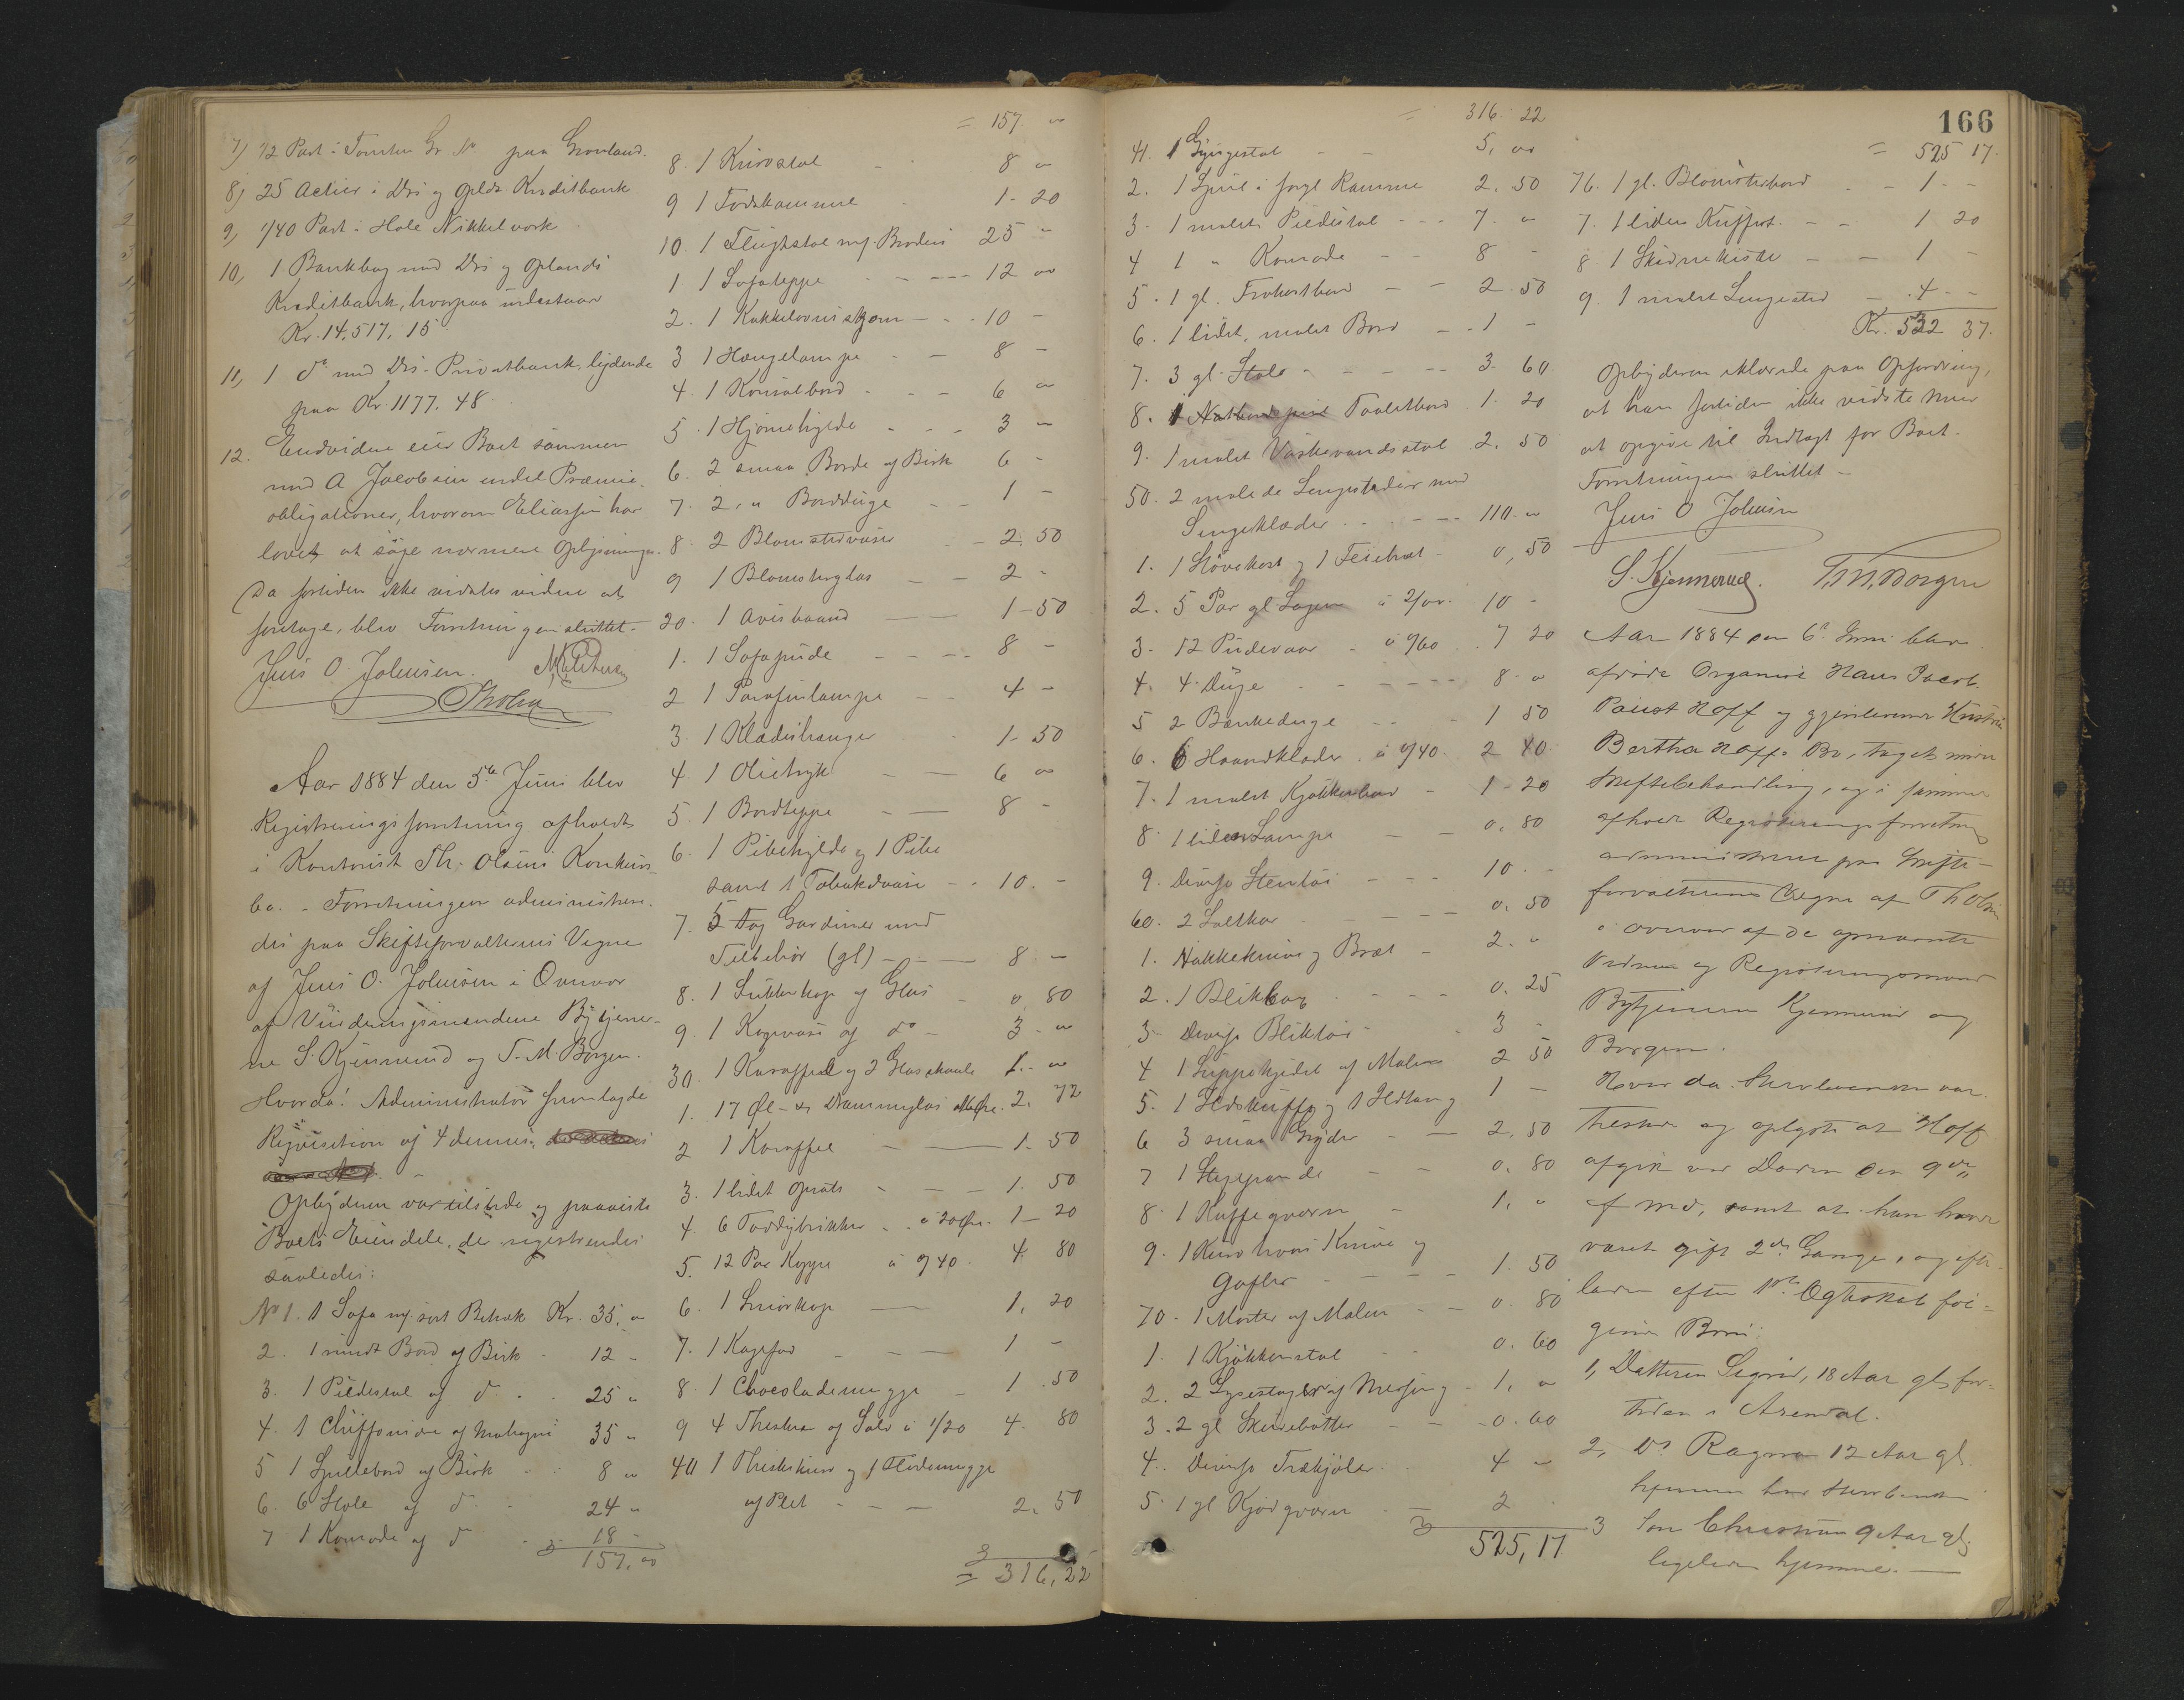 7) 1/2 Part i Tomten Gr. No paa Grønland.
8) 25 Actier i Drs og Oplds Kreditbank
9) 1/40 Part i Hole Nikkelverk
10) 1 Bankbog med Drs og Oplands
Kreditbank, hvorpaa indestaar
Kr. 14,517. 15
11) 1 do med Drs. Privatbank, lydende
paa Kr 1177. 48.
12. Endvidere eier Boet sammen
med A Jacobsen endel Præmie-
obligationer, hvorom Eliassen har
lovet at søge nærmere Oplysninger.
Da fortiden ikke vidstes videre at
foretage, blev Forretningen sluttet.
Jens O. Johnsen.
Aar 1884 den 5te Juni blev
Registreringsforretning afholdt
i Kontorist Th. Olsens Konkurs-
bo. - Forretningen administrere-
des paa Skifteforvalterens Vegne
af Jens O. Johnsen i Overvær
af Vurderingsmændene Bytjener-
ne S. Kjennerud og T. M. Borgen.
Hvorda! Administrator fremlagde
Requisition af 4 dennes,
Opbyderen var tilstede og paaviste
Boets Eiendele, de registreredes
saaledes:
No 1. 1 Sofa m/ sort Betræk Kr. 35, "
2. 1 rundt Bord af Birk - 12 -
3. 1 Piedestal af do - 25 "
4. 1 Chiffoniere af Mahogni 35 "
5 1 Spillebord af Birk - 8 "
6. 6 Stole af do - 24 "
7 1 Komode af do - 18 -
157, 00
= 157 "
8. 1 Kurvstol - 8 "
9 1 Fodskammel - 1 - 20
10. 1 Flugtstol m/ Broderi 25 -
1 1 Sofateppe - 12 00
2. 1 Kakkelovnsskjærm - 10 -
3 1 Hængelampe - 8 -
4. 1 Konsolbord - 6 "
5 1 Hjørnehylde - 3 -
6. 2 smaa Borde af Birk 6 -
7. 2 " Bordduge - 1 -
8. 2 Blomstervaser - 2. 50
9 1 Blomsterglas - 2 -
20. 1 Avisbaand - 1 - 50
1. 1 Sofapude - 8 -
2 1 Parafinlampe - 4 -
3. 1 Klædeshænger - 1 - 50
4. 1 Olietryk - 6 00
5. 1 Bordteppe - 8 -
6. 1 Pibehylde og 1 Pibe
samt 1 Tobaksdaase - 10. -
7. 5 Fag Gardiner med
Tilbehør (gl) - 8 -
8. 1 Sukkerkop af Glas - 0. 80
9. 1 Kagevase af do - 3 - "
30. 1 Karaffel og 2 Glasskaale 1. - "
1. 17 Øl- og Dramglas 2. 72
2 1 Karaffel - 1. 50
3. 1 lidet Opsats - 1. 50
4. 6 Toddybrikker - à 20 Øre 1 - 20
5. 12 Par Kopper à 0/40. 4. 80
6. 1 Smørkop - 1. 20
7. 1 Kagefad - 1 -
8. 1 Chocolademugge - 1 . 50
9 4 Theskeer af Sølv à 1/20 4. 80
40 1 Theskekurv og 1 Flødemugge
af Plet - 2. 50
= 316, 22
166
= 316. 22
41. 1 Gyngestol - 5, 00
2. 1 Speil i forgl Ramme 2. 50
3. 1 malet Piedestal - 7. "
4 1 " Komode - 8 -
5. 1 gl. Frokostbord - 2. 50
6. 1 lidet, malet Bord - 1 -
7. 3 gl. Stole - 3. 60
8. 1 Toiletbord 1. 20
9. 1 malet Vaskevandsstol 2. 50
50. 2 malede Sengesteder med
Sengeklæder - 110. "
1. 1 Støvekost og 1 Feiebræt - 0, 50
2. 5 Par gl Lagen à 2/00. 10 -
3. 12 Pudevaar - à 0/60 7 20
4. 4 Duge - 8. "
5 2 Bænkeduge - 1 50
6. 6 Haandklæder à 0/40 2 40
7. 1 malet Kjøkkenbord - 1 - 20
8. 1 liden Lampe - 0. 80
9. Diverse Stentøi - 10. -
60. 2 Saltkar - 0. 50
1. Hakkekniv og Bræt - 2. "
2. 1 Blik - 0. 25
3. Diverse Bliktøi - 3 -
4 1 Suppekjedel af Malm 2 50
5. 1 Ildskuffe og 1 Ildtang 1 -
6 3 smaa Gryder - 2. 50
7 1 Stegepande - 0. 80
8. 1 Kaffeqværn - 1. "
9. 1 Kurv hvori Knive og
Gafler - 1. 50
70. 1 Morter af Malm - 0. 80
1. 1 Kjøkkenstol - 0. 60
2. 2 Lysestager af Messing - 1. "
3. 2 gl Skurebøtter - 0. 60
4. Diverse Trækjøler - 4 -
5. 1 gl Kjødqværn - 2
525, 17
= 525 17.
76. 1 gl. Blomsterbord - 1 - -
7. 1 liden Kuffert. - 1 20
8. 1 Skidnekiste - 1 -
9. 1 malet Sengested - 4 - -
Kr. 532 37.
Opbyderen erklærede paa Opfordring,
at han fortiden ikke vidste mere
at opgive til Indtægt for Boet.
Forretningen sluttet -
Jens O Johnsen
S. Kjennerud. T. M. Borgen
Aar 1884 den 6te Juni blev
afdøde Organist Hans Jacob
Paust Hoff og gjenlevende Hustru
Bertha Hoffs Bo, taget under
Skiftebehandling, og i samme
afholdt Registreringsforretning
administreret paa Skifte-
forvalterens Vegne af Th Olsen
i Overvær af de opnævnte
Vidner og Registreringsmænd
Bytjenerne Kjennerud og
Borgen.
Hvor da: Skrolevenden var
tilstede og oplyste at Hoff
afgik ved Døden den 9de
f Md, samt at han havde
været gift 2de Gange, og efter-
lader efter 1ste Ægteskab føl-
gende Børn:
1, Datteren Sigrid, 18 Aar gl, for-
tiden i Arendal.
2, Do Ragna 12 Aar gl.
hjemme hos
3 Søn Christian 9 Aar gl
ligeledes hjemme. -